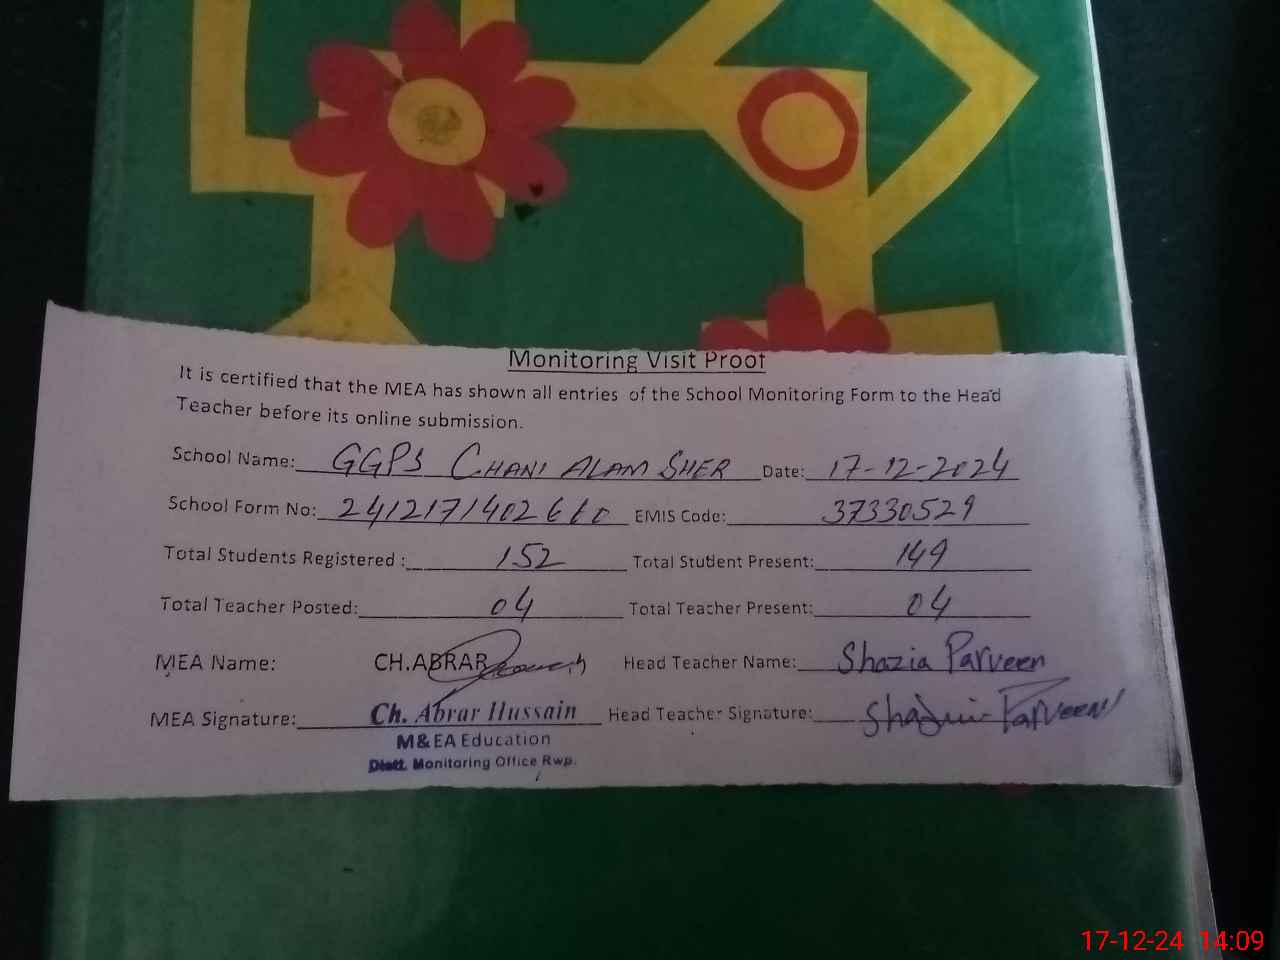 Monitoring Visit Proof
It is certified that the MEA has shown all entries of the School Monitoring Form to the Head
Teacher before its online submission.
School Name: GGPS CHANI ALAM SHER Date: 17-12-2024
School Form No: 2412171402660 EMIS Code: 37330529
Total Students Registered : 152 Total Student Present: 149
Total Teacher Posted: 04 Total Teacher Present: 04
MEA Name: CH.ABRAR Head Teacher Name: Shazia Parveen
MEA Signature: Ch. Abrar Hussain Head Teacher Signature: Shazia Parveen
M&EA Education
Distt. Monitoring Office Rwp.
17-12-24 14:09